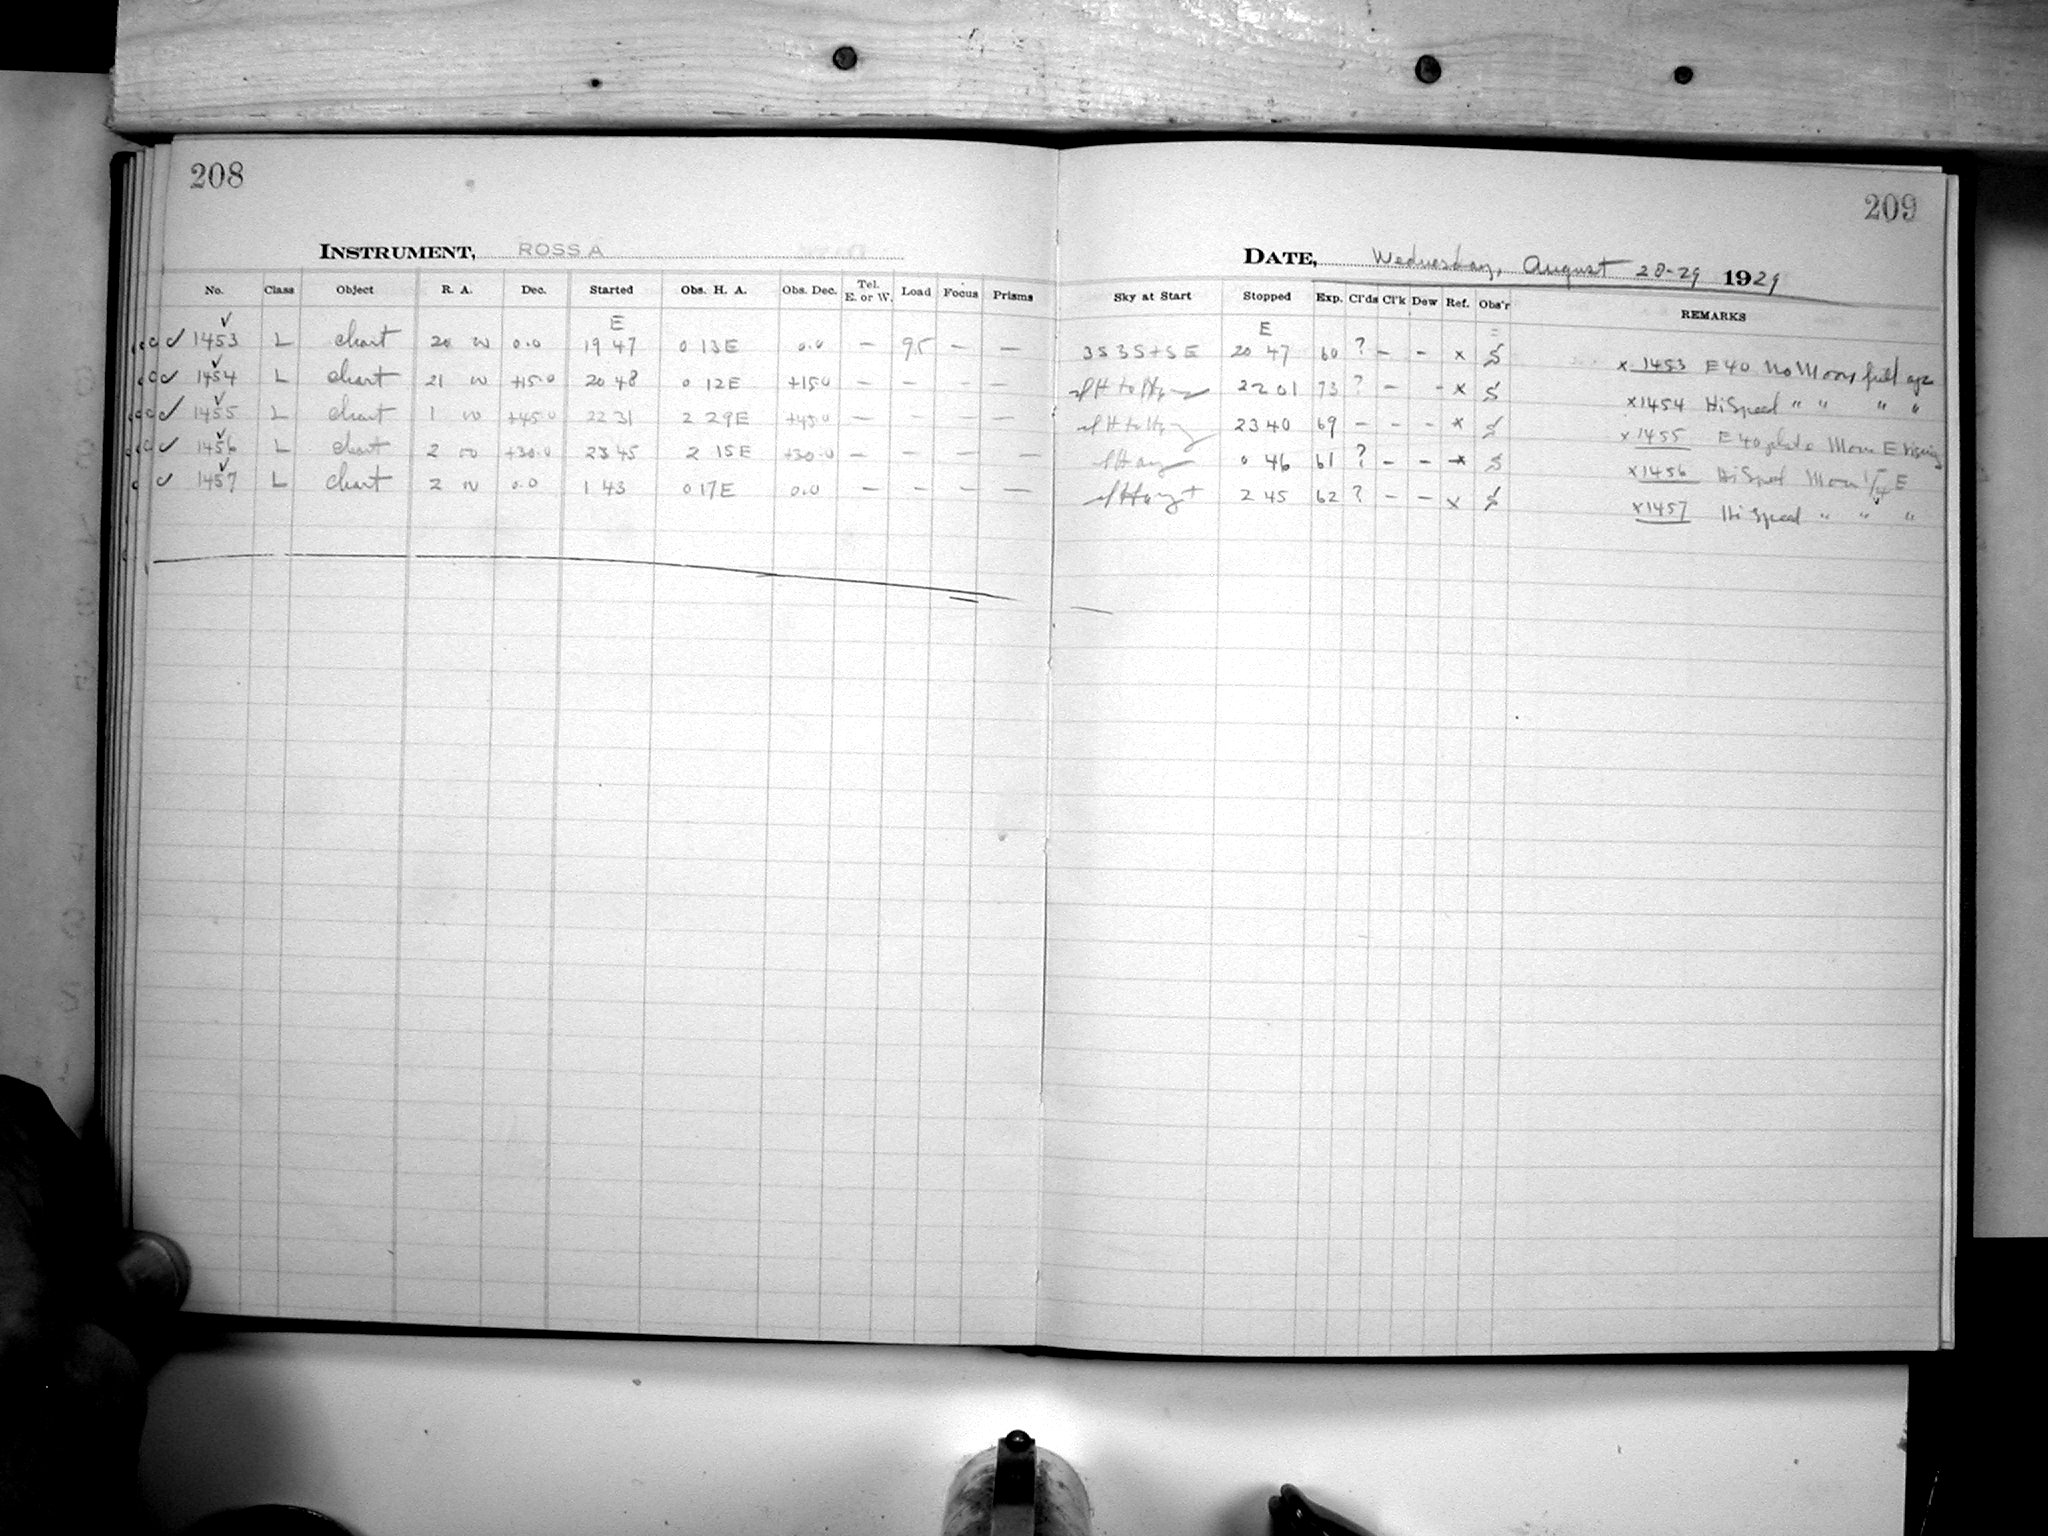 208
209
INSTRUMENT, ROSS A
DATE, Wednesday, August 28-29 1929
No. Class Object R. A. Dec. Started Obs. H. A. Obs. Dec. Tel. E. or W. Load Focus Prisms Sky at Start Stopped Exp. Cl'ds Cl'k Dew Ref. Obs'r REMARKS
E E
✓ 1453 L chart 20 00 0.0 19 47 0 13E 0.0 — 95 — — 3S 3S+S E 20 47 60 ? – – x S x 1453 E40 No Moon
✓ 1454 L chart 21 00 +15.0 20 48 0 12E +15.0 — — — — 22 01 73 ? – – x S x1454 Hi Speed " " " "
✓ 1455 L chart 1 00 +45.0 22 31 2 29E +45.0 — — — — 23 40 69 – – – x S x1455 E40 plate Moon E rising
✓ 1456 L chart 2 00 +30.0 23 45 2 15E +30.0 — — — — 0 46 61 ? – – x S x1456 Hi Speed Moon 1/4 E
✓ 1457 L chart 2 00 0.0 1 43 0 17E 0.0 — — — — 2 45 62 ? – – x S x1457 Hi Speed " " "